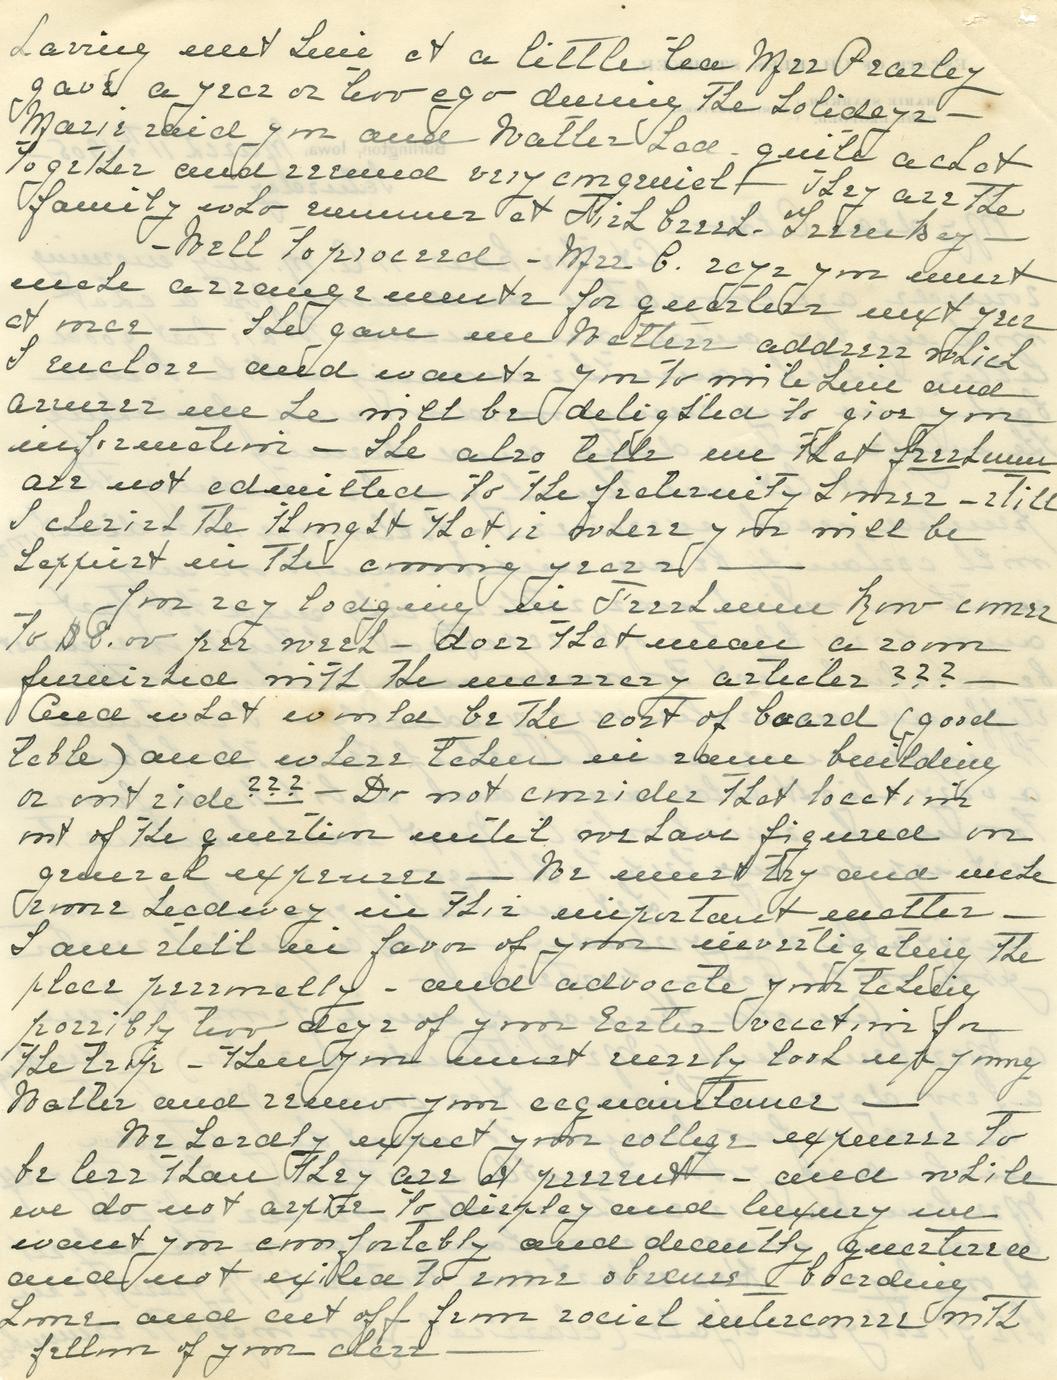 having met him at a little tea Mrs Prasley
gave a year or two ago during the holidays —
Marie said you and Walter had - quite a chat
together and seemed very congenial — They are the
family who summer at Fish Creek - Green Bay —
- Well to proceed - Mrs C. says you must
make arrangements for quarters next year
at once — She gave me Walters address which
I enclose and wants you to write him and
assures me he will be delighted to give you
information — She also tells me that freshmen
are not admitted to the fraternity house - still
I cherish the thought that is where you will be
happiest in the coming years —
You say lodging in Freshman Row comes
to $8.00 per week - does that mean a room
furnished with the necessary articles ??? —
And what would be the cost of board (good
table) and where taken in same building
or outside ??? — Do not consider that location
out of the question until we have figured on
general expenses — We must try and make
some headway in this important matter —
I am still in favor of your investigating the
place personally - and advocate your taking
possibly two days of your Easter vacation for
the trip - then you must surely look up young
Walter and renew your acquaintance —
We hardly expect your college expenses to
be less than they are at present - and while
we do not aspire to display and luxury we
want you comfortably and decently quartered
and not exiled to some obscure boarding
house and cut off from social intercourse with
fellows of your class —